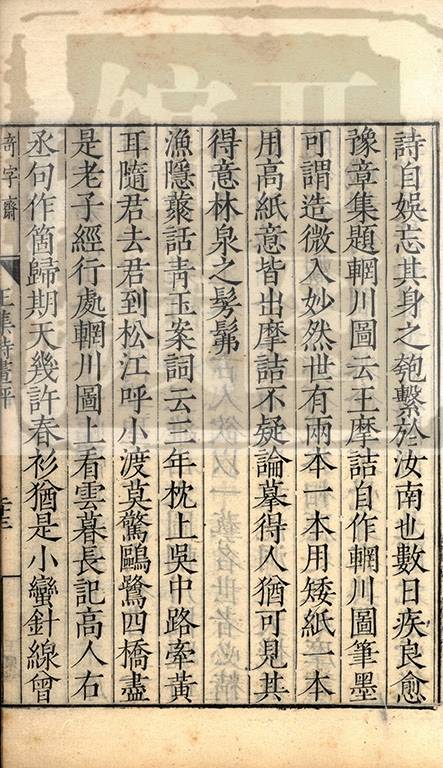 詩自娛忘其身之匏繫於汝南也數日疾良愈
豫章集題輞川圖云王摩詰自作輞川圖筆墨
可謂造微入妙然世有兩本一本用矮紙一本
用高紙意皆出摩詰不疑論摹得人猶可見其
得意林泉之髣髴
漁隱藂話青玉案詞云三年枕上吳中路牽黃
耳隨君去君到松江呼小渡莫驚鷗鷺四橋盡
是老子經行處輞川圖上看雲暮長記高人右
丞句作箇歸期天幾許春衫猶是小蠻針線曾
奇字齋
王集詩畫評